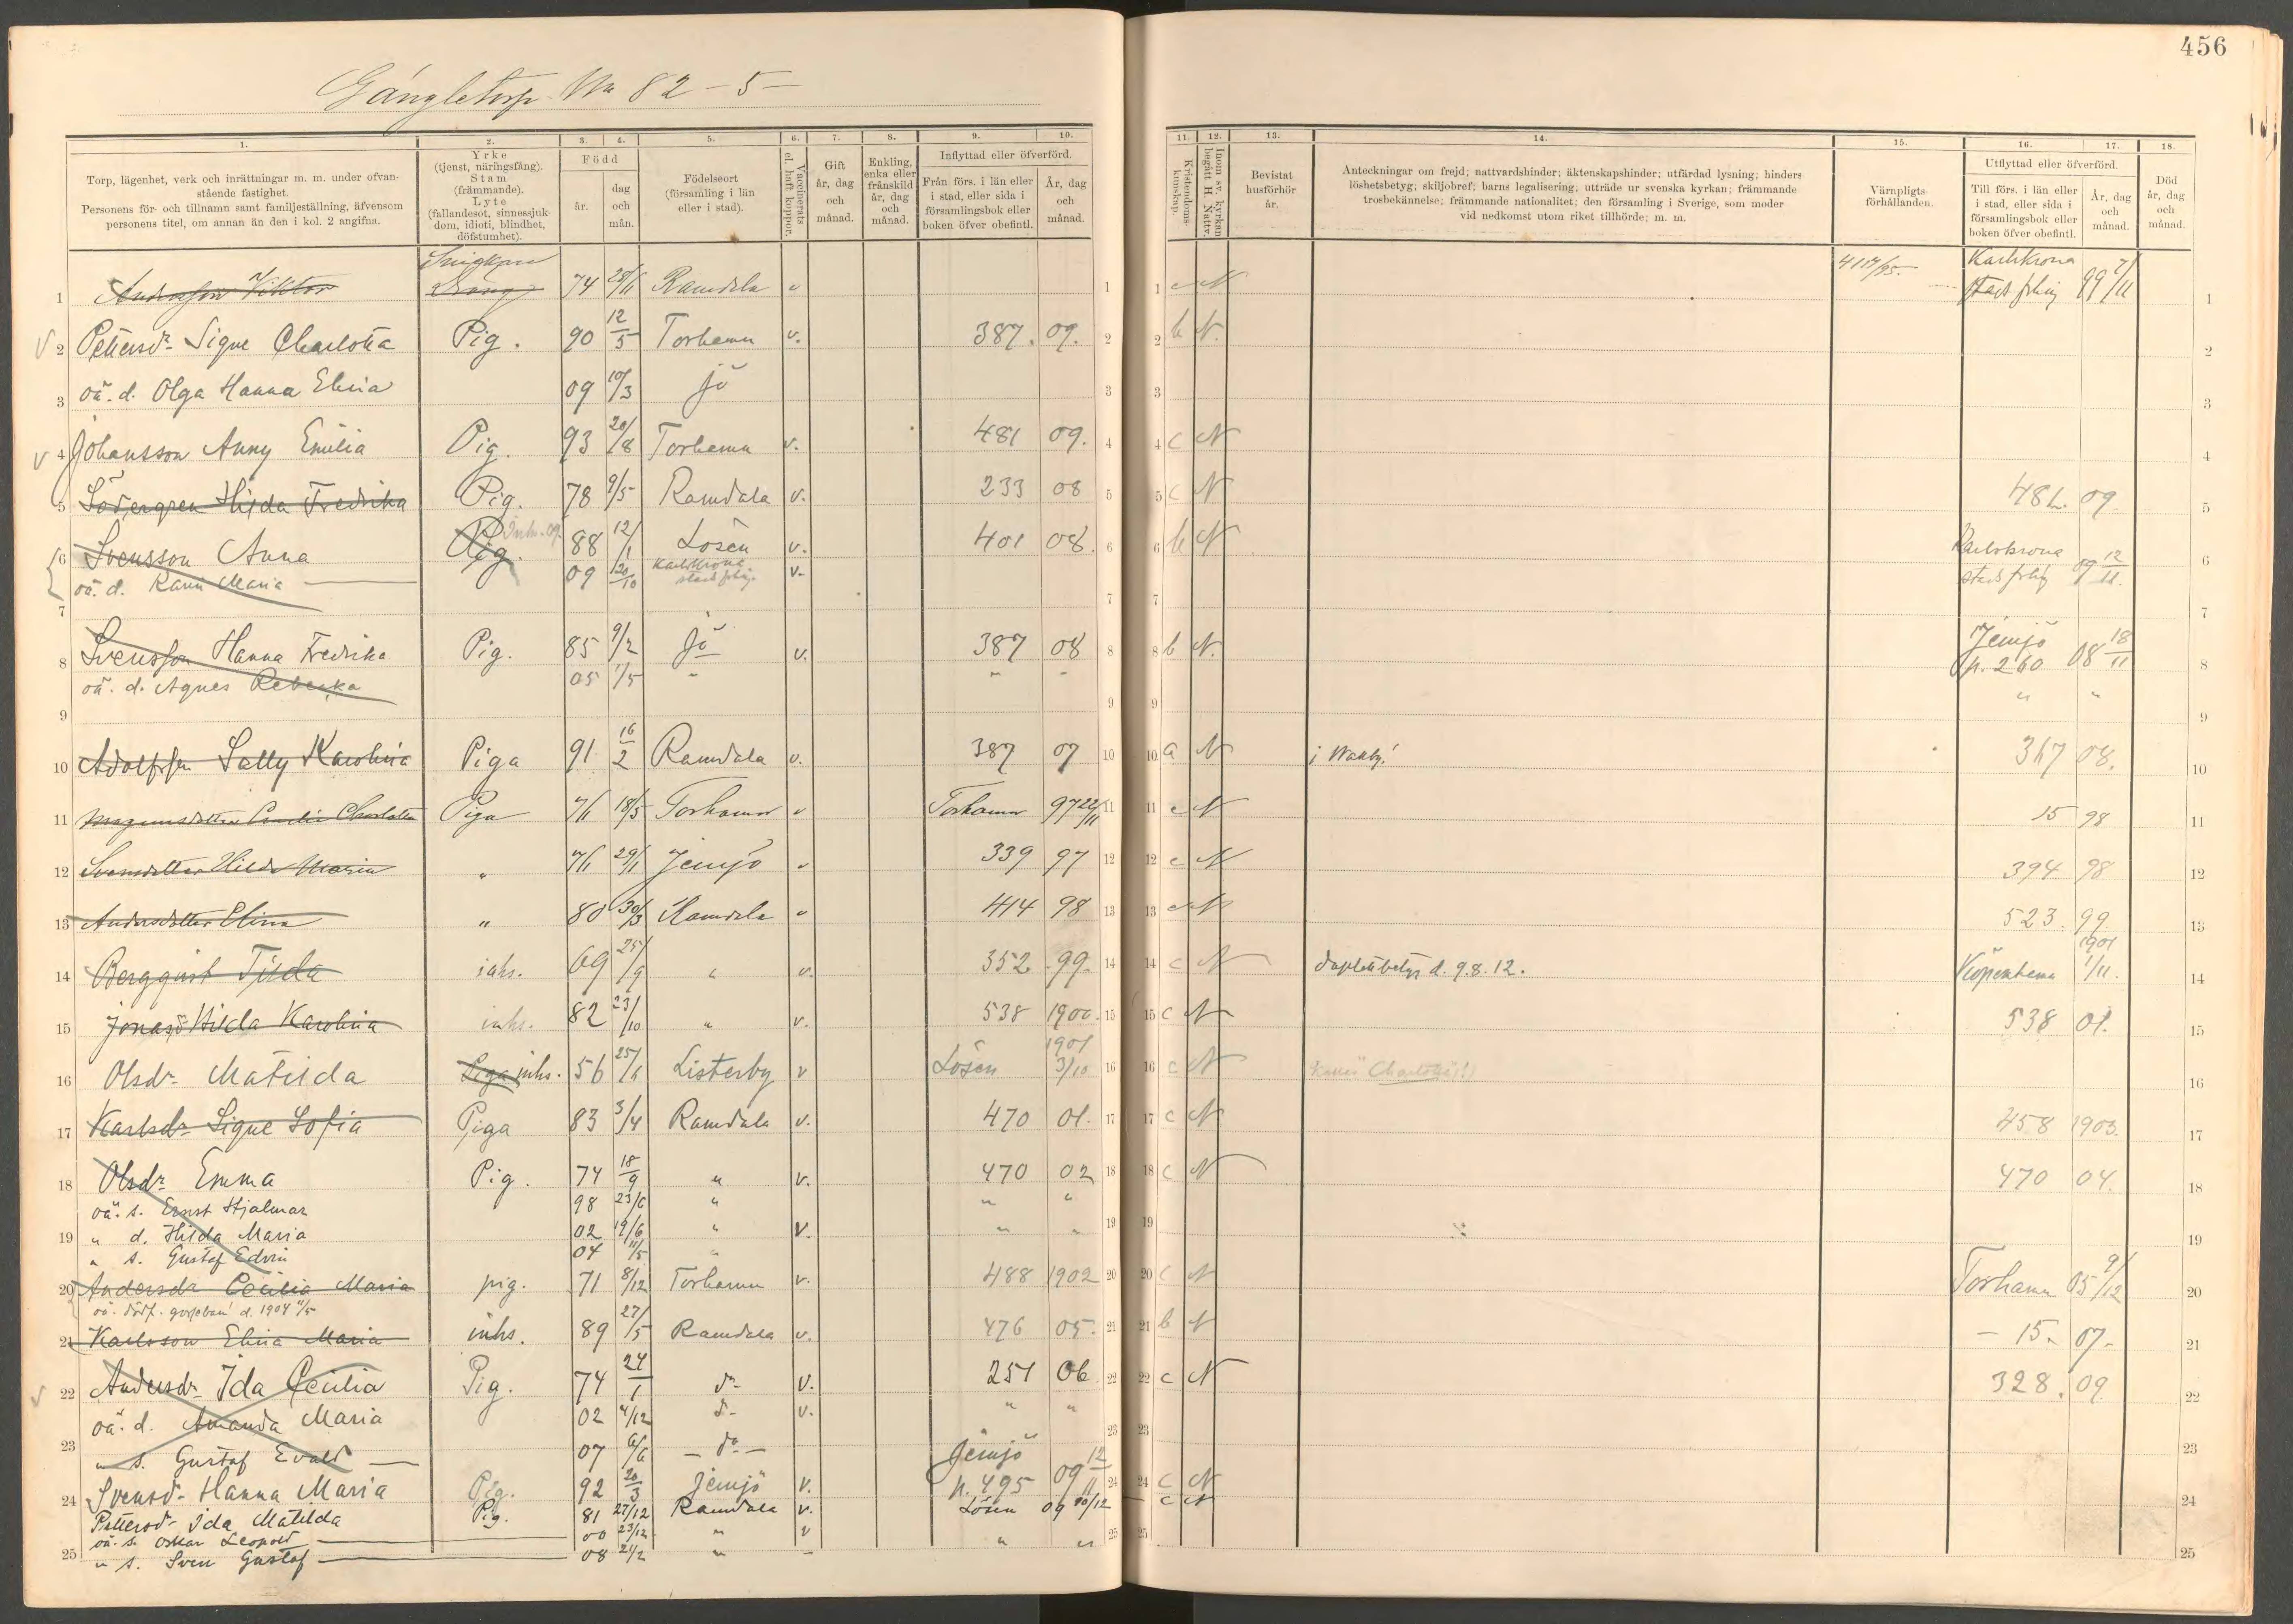 456
Gängletorp No 82-5-
1. 2. 3. 4. 5. 6. 7. 8. 9. 10. 11. 12. 13. 14. 15. 16. 17. 18.
Torp, lägenhet, verk och inrättningar m. m. under ofvanstående fastighet.
Personens för- och tillnamn samt familjeställning, äfvensom personens titel, om annan än den i kol. 2 angifna.
Yrke (tjenst, näringsfång). Stam (främmande). Lyte (fallandesot, sinnessjukdom, idioti, blindhet, döfstumhet).
Född
år.
dag och mån.
Födelseort (församling i län eller i stad).
Vaccinerats el. haft koppor.
Gift år, dag och månad.
Enkling, enka eller frånskild år, dag och månad.
Inflyttad eller öfverförd.
Från förs. i län eller i stad, eller sida i församlingsbok eller boken öfver obefintl.
År, dag och månad.
Kristendomskunskap.
Inom sv. kyrkan begått H. Nattv.
Bevistat husförhör år.
Anteckningar om frejd; nattvardshinder; äktenskapshinder; utfärdad lysning; hinderslöshetsbetyg; skiljobref; barns legalisering; utträde ur svenska kyrkan; främmande trosbekännelse; främmande nationalitet; den församling i Sverige, som moder vid nedkomst utom riket tillhörde; m. m.
Värnpligtsförhållanden.
Utflyttad eller öfverförd.
Till förs. i län eller i stad, eller sida i församlingsbok eller boken öfver obefintl.
År, dag och månad.
Död år, dag och månad.
1 Andersson Viktor Dräng 74 Ramdala v 1 1 c N Karlskrona stadsförsg 99 7/11 1
2 Pettersdr Signe Charlotta Pig. 90 12/5 Torhamn v. 387. 09. 2 2 b N. 2
3 oä. d. Olga Hanna Elina 09 10/3 Jö 3 3 3
4 Johansson Anny Emilia Pig. 93 20/8 Torhamn v. 481 09. 4 4 c N 4
5 Södergren Hilda Fredrika Pig. 78 9/5 Ramdala v. 233 08 5 5 c N 482. 09. 5
6 Svensson Anna Pig. Inh. 09 88 12/1 Lösen v. 401 08. 6 6 b N Karlskrona stadsförsg 09 12/11. 6
oä. d. Karin Maria 09 20/10 Karlskrona stadsförsg. v.
7 7 7 7
8 Svensson Hanna Fredrika Pig. 85 9/2 Jö v. 387 08 8 8 b N. Jemjö p. 260 08 18/11 8
oä. d. Agnes Rebecka 05 1/5 " " " " "
9 9 9 9
10 Adolfsson Sally Karolina Piga 91 16/2 Ramdala v. 387 07 10 10 a N i Wallby! 367 08. 10
11 Magnusdotter Emelie Charlotta Piga 76 18/5 Torhamn v Torhamn 97 22/11 11 11 c N 15 98 11
12 Svensdotter Hilda Maria " 76 29/1 Jemjö v 339 97 12 12 c N 394 98 12
13 Andersdotter Elina " 80 30/3 Ramdala v 414 98 13 13 c N 523. 99 13
14 Bergqvist Tilda inhs. 69 25/9 " v. 352 99. 14 14 c N Duplettbetyg d. 9.8.12. Köpenhamn 1901 1/11. 14
15 Jonasd. Hilda Karolina inhs. 82 23/10 " v. 538 1900. 15 15 c N 538 01. 15
16 Olsdr Matilda Piga inhs. 56 Listerby v Lösen 1901 3/10 16 16 c N 16
17 Karlsdr Signe Sofia Piga 83 3/4 Ramdala v. 470 01. 17 17 c N 458 1903. 17
18 Olsdr Emma Pig. 74 18/9 " v. 470 02 18 18 c N 470 04. 18
oä. s. Ernst Hjalmar 98 23/6 " " "
19 " d. Hilda Maria 02 19/6 " v. " " 19 19 19
" s. Gustaf Edvin 04 11/5 "
20 Andersdr Cecilia Maria pig. 71 8/12 Torhamn v. 488 1902 20 20 c N Torhamn 05 9/12 20
oä. dödf. gossebarn d. 1904 4/5
21 Karlsson Elina Maria inhs. 89 27/5 Ramdala v. 476 05. 21 21 b N - 15. 07. 21
22 Andersdr Ida Cecilia Pig. 74 24/1 do v. 251 06. 22 22 c N 328. 09. 22
oä. d. Amanda Maria 02 4/12 do v. " "
23 " s. Gustaf Evald 07 6/6 - do - 23 23 23
24 Svensdr Hanna Maria Pig. 92 20/3 Jemjö v. Jemjö p. 495 09 12/11 24 24 c N 24
Pettersdr Ida Matilda Pig. 81 27/12 Ramdala v. Lösen 09 10/12 c N
oä. s. Oskar Leopold 00 23/12 " v " " 25 25
25 " s. Sven Gustaf 08 21/2 " - 25